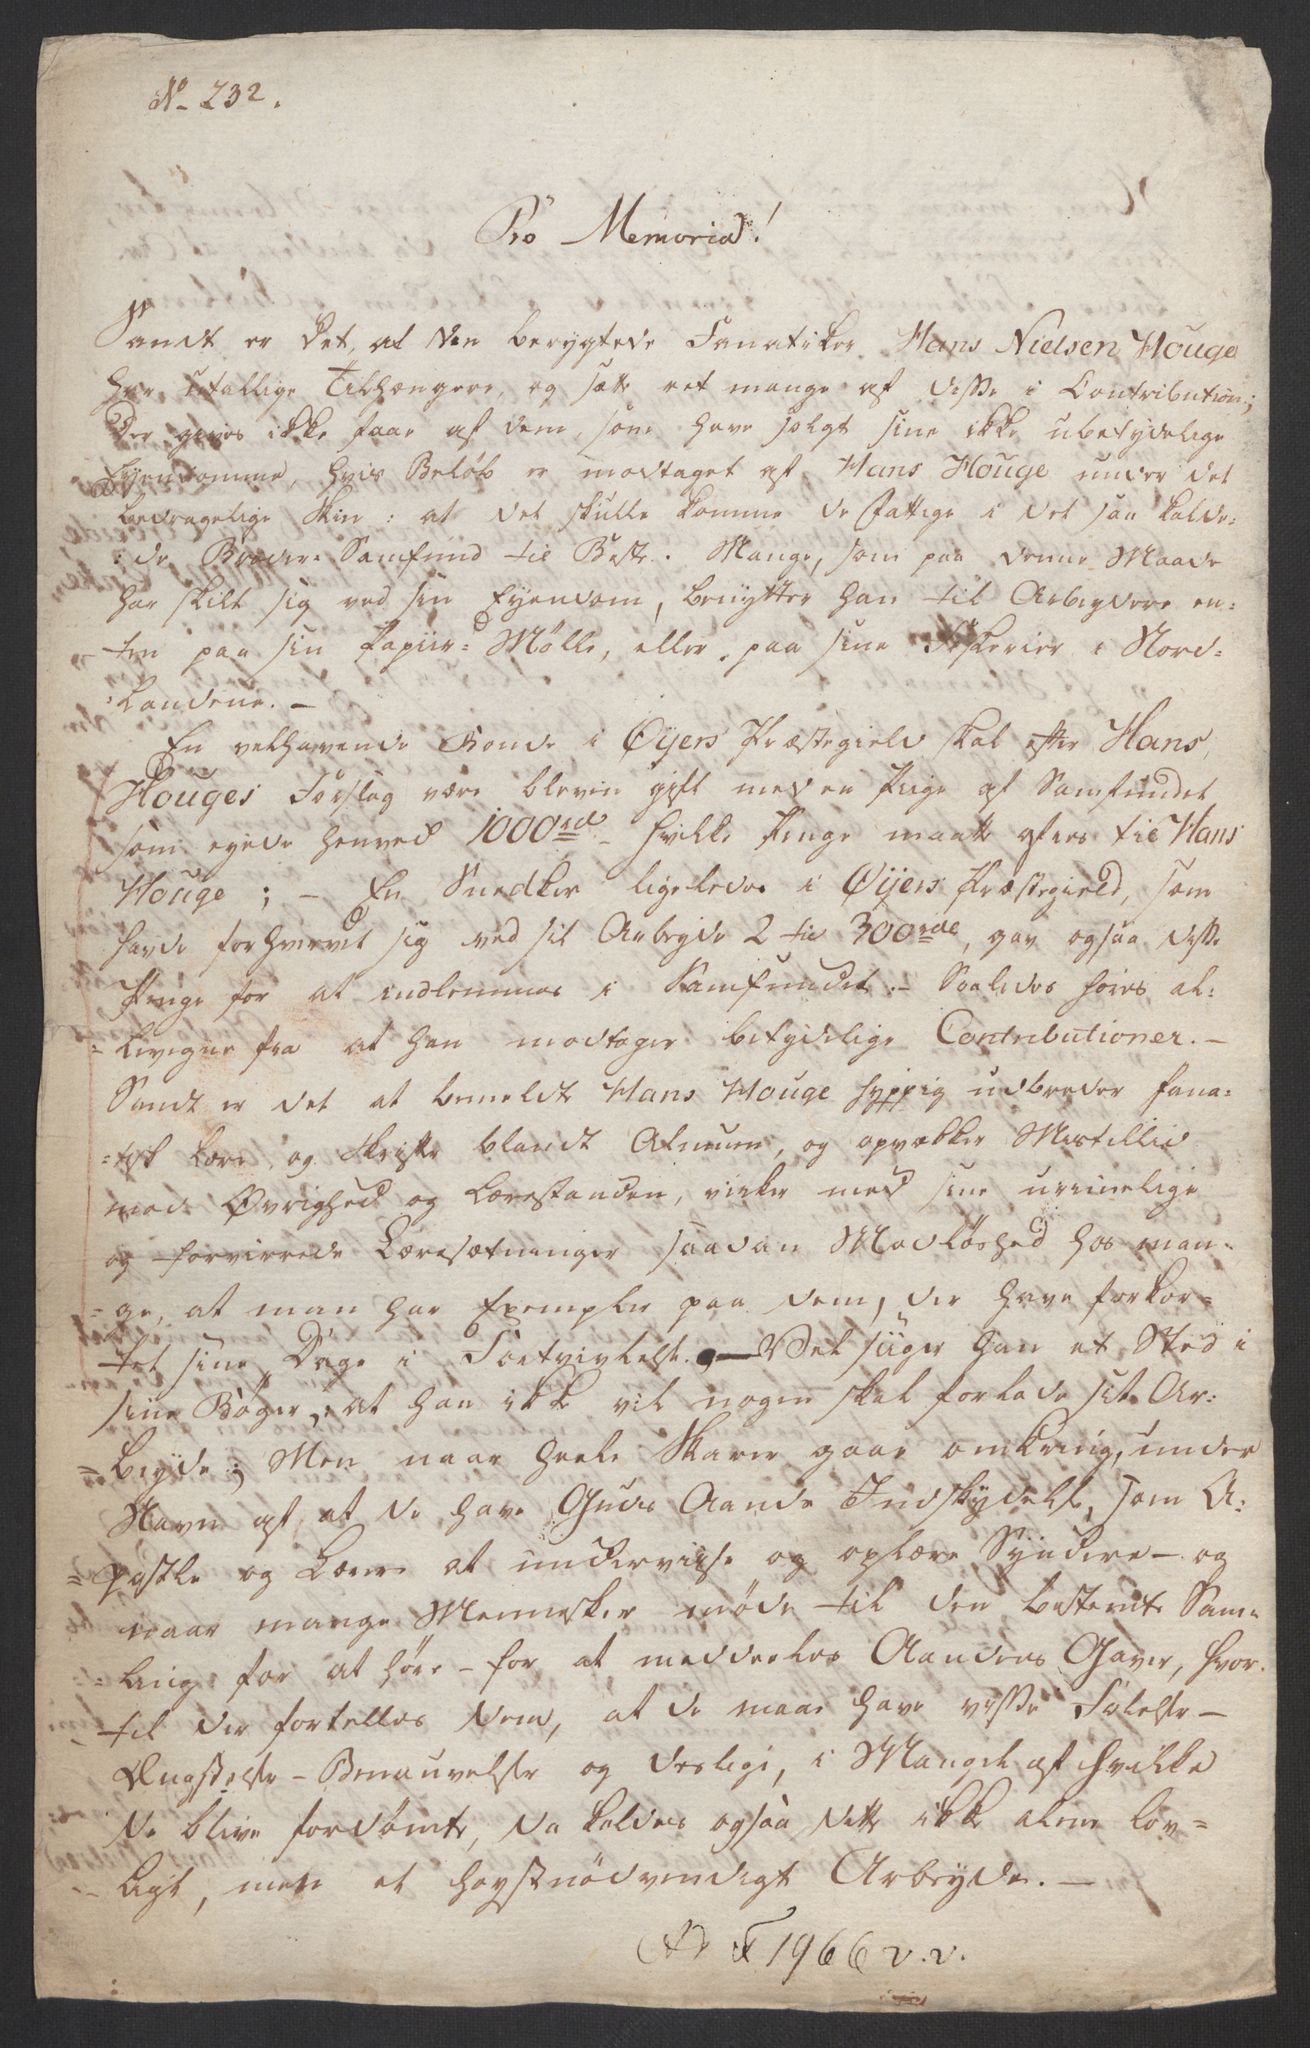 No 232.
Pro Memoria!
Sandt er det, at den berygtede Fanatiker Hans Nielsen Houge
har utallige Tilhængere, og satt ret mange af disse i Contribution;
Der gives ikke faae af dem, som have solgt sine ikke ubetydelige
Eyendomme, hvis Beløb er modtaget af Hans Houge under det
bedragelige Skin: at det skulle komme de Fattige i det saa kalde-
:de Brødre-Samfund til Beste. Mange, som paa denne Maade
har skilt sig ved sin Eyendom, benytter han til Arbeydere en-
ten paa sin Papiir-Mølle, eller paa sine Fiskerier i Nord-
:landene. —
En velhavende Bonde i Øijers Præstegield skal efter Hans
Houges Forslag være bleven gift med en Pige af Samfundet
som eyede henved 1000rd - hvilke Penge maatte gives til Hans
Houge; - En Snedker ligeledes i Øijers Præstegield, som
havde forhvervet sig ved sit Arbeyde 2 til 300rde, gav ogsaa disse
Penge for at indlemmes i Samfundet. - Saaledes høres al-
-levegne fra at han modtager betydelige Contributioner. —
Sandt er det at bemeldte Hans Houge hyppig udbreder fana-
-tisk Lære og Skrifter blandt Almuen, og opvækker Mistillid
mod Øvrighed og Lærestanden, virker med sine urimelige
og forvirrede Læresætninger saadan Modløshed hos man-
-ge, at man har Exempler paa dem, der have forkor-
tet sine Dage i Fortvivlelse. — Vel siiger han et Sted i
sine Bøger, at han ikke vil nogen skal forlade sit Ar-
=beyde; Men naar heele Skarer gaae omkring, under
Navn af at de have Guds Aands Indskydelse, som A-
=postle og Lærere at underviise og oplære Syndere - og
naar mange Mennesker møde til den bestemte Sam-
-ling for at høre - for at meddeeles Aandens Gaver, hvor-
til der fortelles dem, at de maae have visse Følelser -
Ængstelser - Benauvelser og desligt, i Mangel af hvilke
de blive fordømte, da kaldes ogsaa dette ikke alene lov-
-ligt, men et høystnødvendigt Arbeyde. —
1966 v.v.